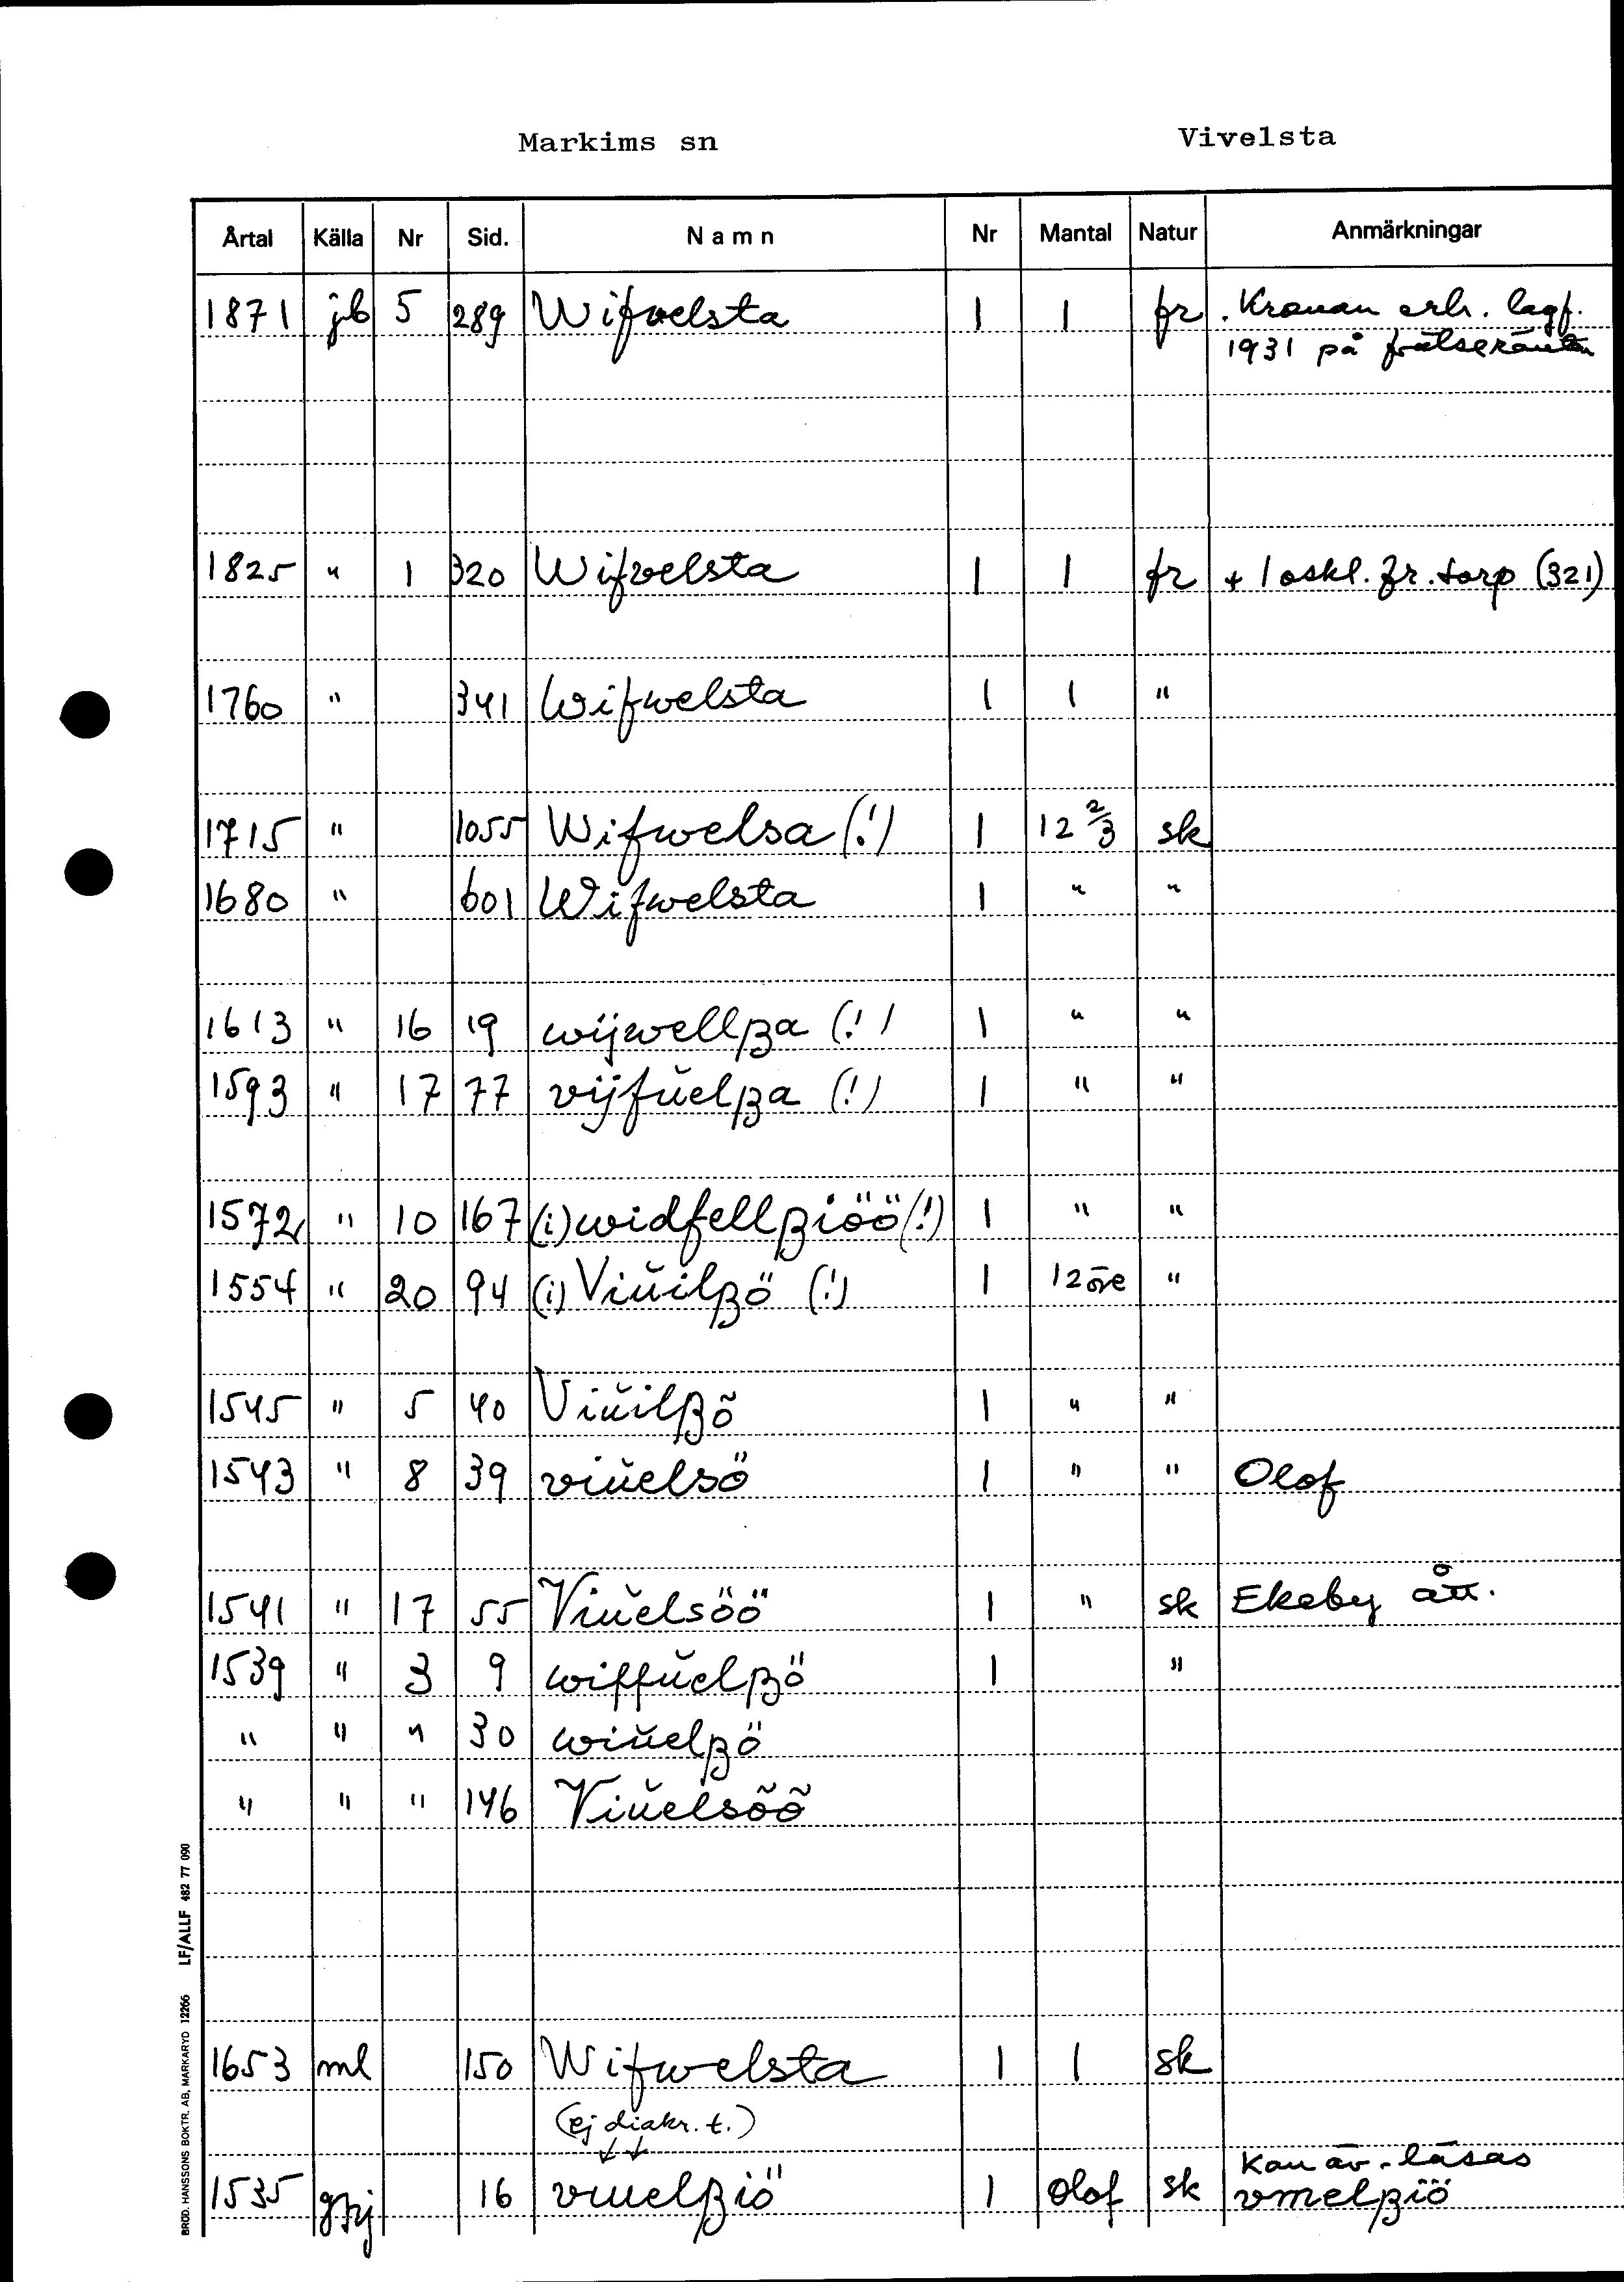 Markims sn Vivelsta
Årtal Källa Nr Sid. Namn Nr Mantal Natur Anmärkningar
1871 jb 5 289 Wifvelsta 1 1 fr . Kronan erh. lagf.
1931 på frälseräntan
1825 " 1 320 Wifvelsta 1 1 fr + 1 oskl. fr. torp (321)
1760 " 341 Wifwelsta 1 1 "
1715 " 1055 Wifwelsa (!) 1 12 2/3 sk
1680 " 601 Wifwelsta 1 " "
1613 " 16 19 wijwellßa (!) 1 " "
1593 " 17 77 vijfŭelßa (!) 1 " "
1572 " 10 167 (i) widfellßiöö (!) 1 " "
1554 " 20 94 (i) Viŭilßö (!) 1 12 öre "
1545 " 5 40 Viŭilßõ 1 " "
1543 " 8 39 viŭelsö 1 " " Olof
1541 " 17 55 Viŭelsöö 1 " sk Ekeby ått.
1539 " 3 9 wiffŭelßö 1 "
" " " 30 wiŭelßö
" " " 146 Viŭelsõõ
1653 ml 150 Wifwelsta 1 1 sk
(ej diakr. t.)
↓ ↓
Kan äv. läsas
1535 16 vıuelßiö 1 Olof sk vmelßiö
BRÖD. HANSSONS BOKTR. AB, MARKARYD 12266 LF/ALLF 482 77 090